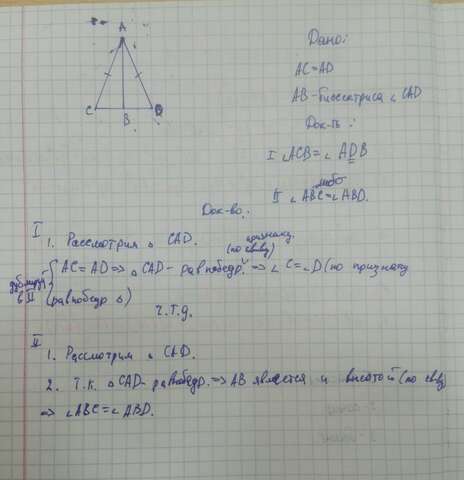 A
C
B
D
Дано:
AC=AD
AB-биссектриса ∠ CAD
Док-ть:
I ∠ACB=∠ ADB
II ∠ABC=∠ABD.
Док-во:
I
1. Рассмотрим △ CAD.
признаку
(по св-ву)
{ AC=AD => △ CAD- равнобедр. => ∠C=∠D (по признаку
в II
равнобедр △)
Ч.Т.Д.
II
1. Рассмотрим △ CAD.
2. Т.к. △CAD- равнобедр. => AB является и высотой (по св-ву)
=> ∠ABC=∠ABD.